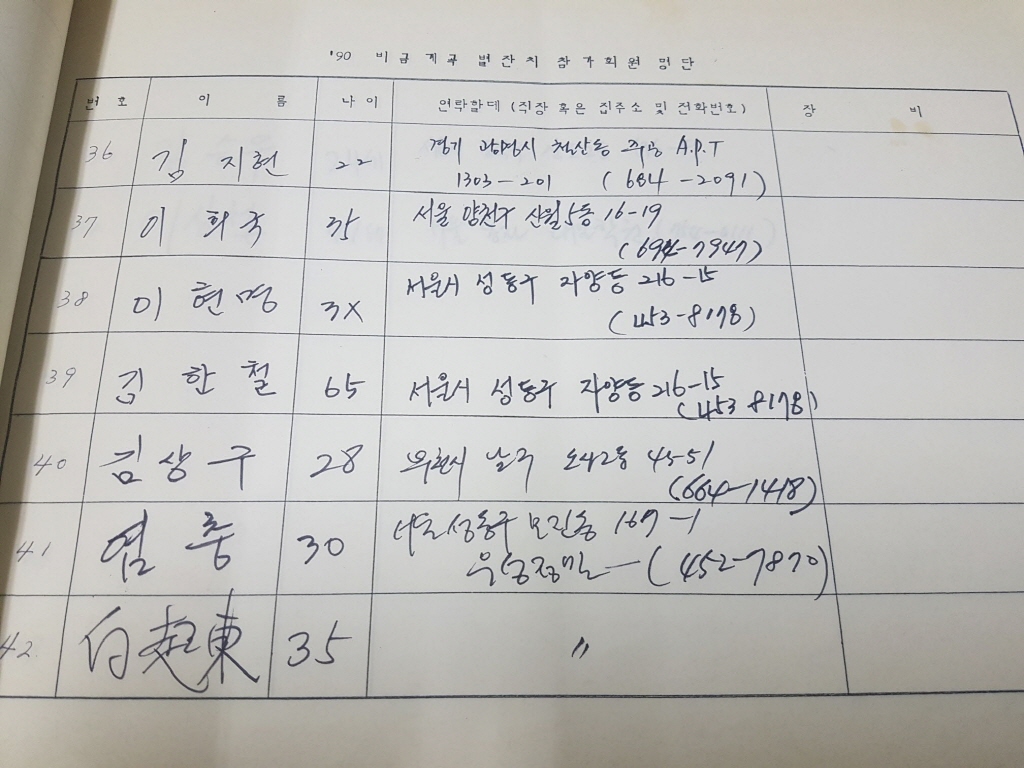 '90 비금계곡 벌잔치 참가회원 명단
번 호 이 름 나 이 연락할데 (직장 혹은 집주소 및 전화번호) 장 비
36 김 지현 22 경기 광명시 철산동 주공 A.P.T
1303-201 (684-2091)
37 이 희 국 35 서울 양천구 신월5동 16-19
(694-7947)
38 이 현 명 3X 서울시 성동구 자양동 216-15
(453-8178)
39 김 한 철 65 서울시 성동구 자양동 216-15
(453 8178)
40 김 상 구 28 부천시 남구 45-51
(664-1418)
41 염 종 30 성동구 모진동 167-1
우성정밀 - (452-7870)
42 白 東 35 〃